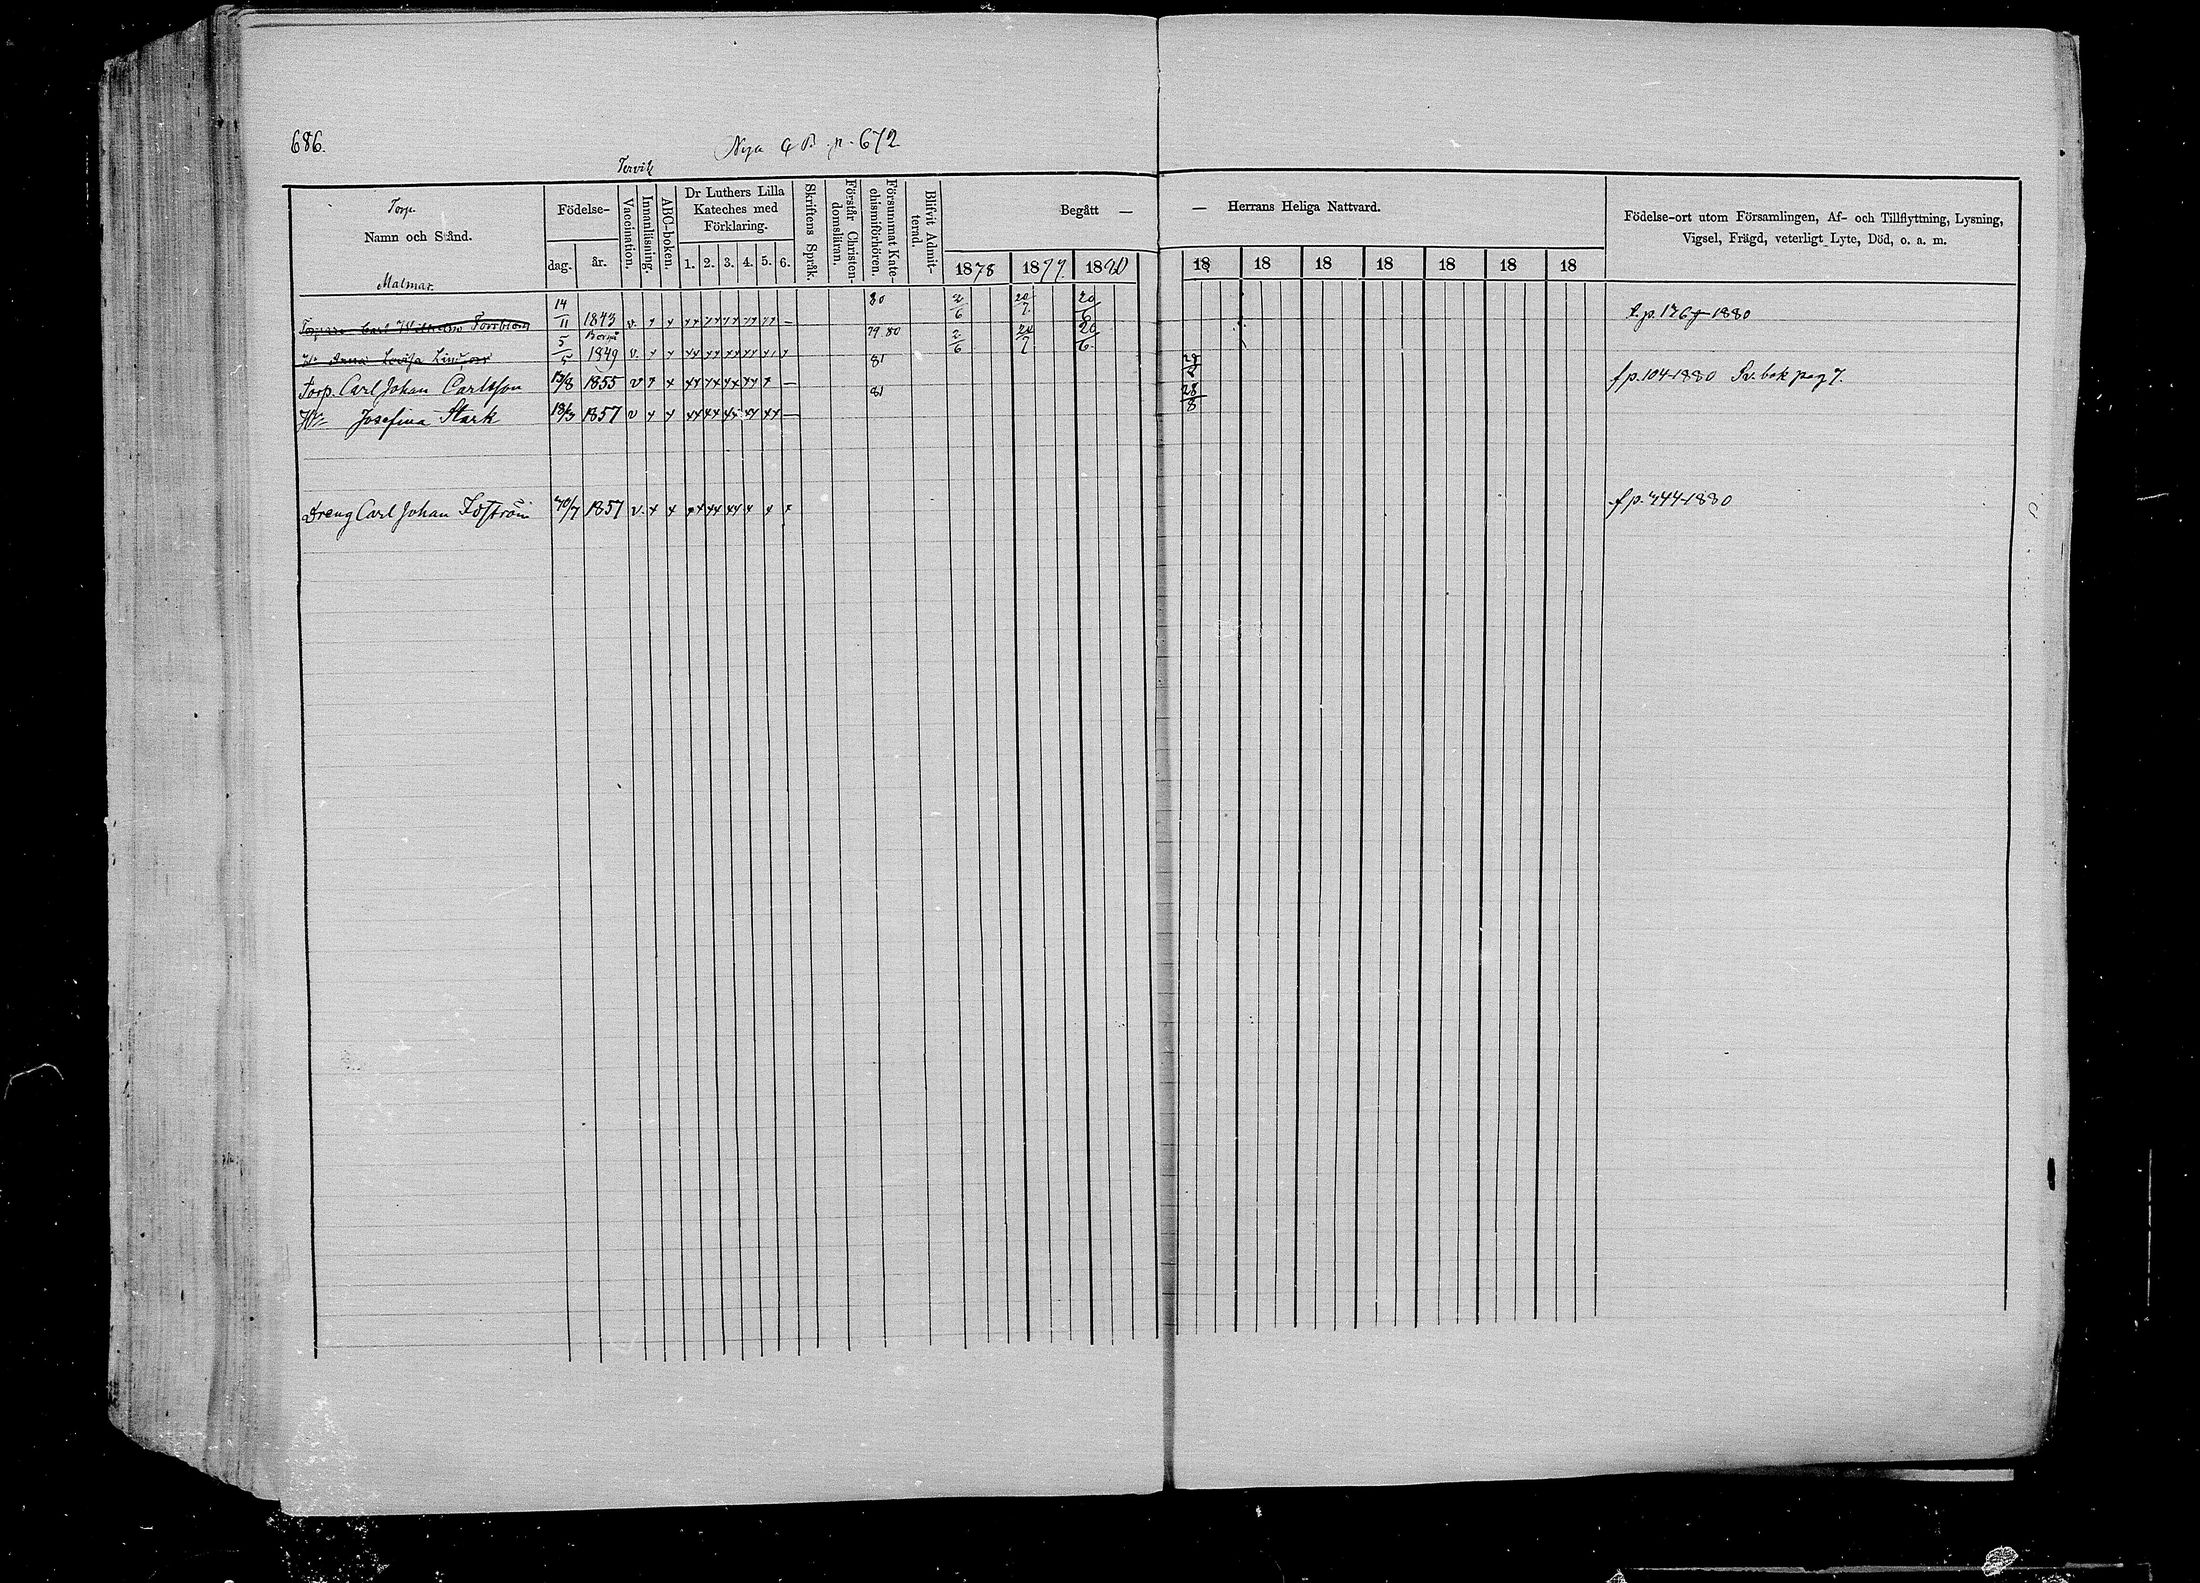 686.
Nya C B. p. 672
Tervik
Torp.
Namn och Stånd.
Malmar.
Födelse-
dag. år.
Vaccination.
Innanläsning.
ABC-boken.
Dr Luthers Lilla
Kateches med
Förklaring.
1. 2. 3. 4. 5. 6.
Skriftens Språk.
Förstår Christen-
domsläran.
Försummat Kate-
chismiförhören.
Blifvit Admit-
terad.
Begått —
1878 1879 1880
— Herrans Heliga Nattvard.
18 18 18 18 18 18 18
Födelse-ort utom Församlingen, Af- och Tillflyttning, Lysning,
Vigsel, Frägd, veterligt Lyte, Död, o. a. m.
Carl Wilhelm 14/11 1843 v. 80 2/6 20/7 20/6
Anna Lovisa 5/5 1849 v. 79 80 2/6 20/7 20/6
Torp. Carl Johan Carlsson 1855 v 81 f p. 104-1880 Kv. bok pag 7.
Josefina Stark 1857 v 81 28/8
Dreng Carl Johan 1857 v. f p. 744-1880